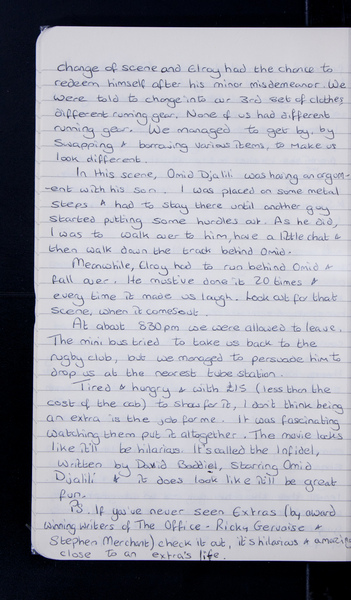 change of scene and Elroy had the chance to
redeem himself after his minor misdemeanor. We
were told to change into our 3rd set of clothes,
different running gear. None of us had different
running gear. We managed to get by, by
swapping & borrowing various items, to make us
look different.
In this scene, Omid Djalili was having an argum-
-ent with his son. I was placed on some metal
steps & had to stay there until another guy
started putting some hurdles out. As he did,
I was to walk over to him, have a little chat &
then walk down the track behind Omid.
Meanwhile, Elroy had to run behind Omid &
fall over. He must've done it 20 times &
every time it made us laugh. Look out for that
scene, when it comes out.
At about 8.30pm we were allowed to leave.
The mini bus tried to take us back to the
rugby club, but we managed to persuade him to
drop us at the nearest tube station.
Tired & hungry & with £15 (less than the
cost of the cab) to show for it, I don't think being
an extra is the job for me. It was fascinating
watching them put it altogether. The movie looks
like it'll be hilarious. It's called the Infidel,
written by David Baddiel, starring Omid
Djalili & it does look like it'll be great
fun.
PS. If you've never seen Extras (by award
winning writers of The Office - Ricky Gervaise &
Stephen Merchant) check it out, it's hilarious & amazing
close to an extra's life.